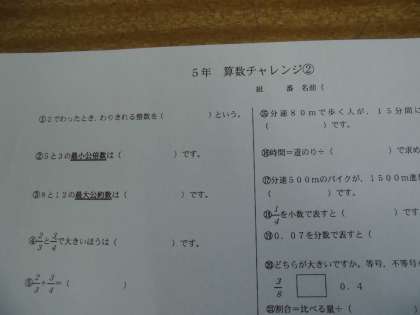 5年 算数チャレンジ②
組 番 名前(
①2でわったとき，わりきれる整数を( )という。
②5と3の最小公倍数は( )です。
③8と12の最大公約数は( )です。
④2/3と3/4で大きいほうは( )です。
⑤2/3+3/4=( )
分速80mで歩く人が，15分間に
( )です。
⑯時間=道のり÷( )で求め
⑰分速500mのバイクが，1500m進
( )です。
⑱ を小数で表すと(
⑲0.07を分数で表すと(
⑳どちらが大きいですか。等号，不等号
3/8 □ 0.4
割合=比べる量÷(